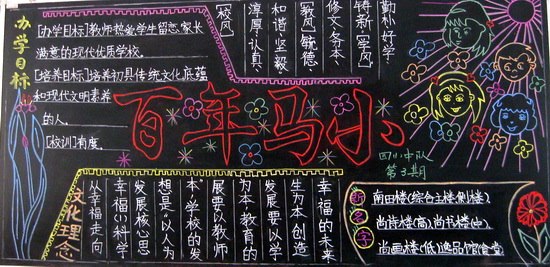 办学目标
[办学目标]教师热爱学生留恋家长
满意的现代优质学校。
[培养目标]培养初具传统文化底蕴
和现代文明素养
的人。
[校训]有度。
[校风]
淳厚·认真·
和谐·坚毅
[教风]毓德·
修文·务本·
铸新·[学风]
勤朴·好学
百年马小
四(1)中队
第3期
文化理念
幸福的未来
生为本创造
发展要以学
为本教育的
展要以教师
本”学校的发
想是“以人为
发展核心思
幸福(1)科学
从幸福走向
新名字
南田楼(综合主楼,侧楼)
尚诗楼(高)尚书楼(中)
尚画楼(低)逸品馆(食堂)